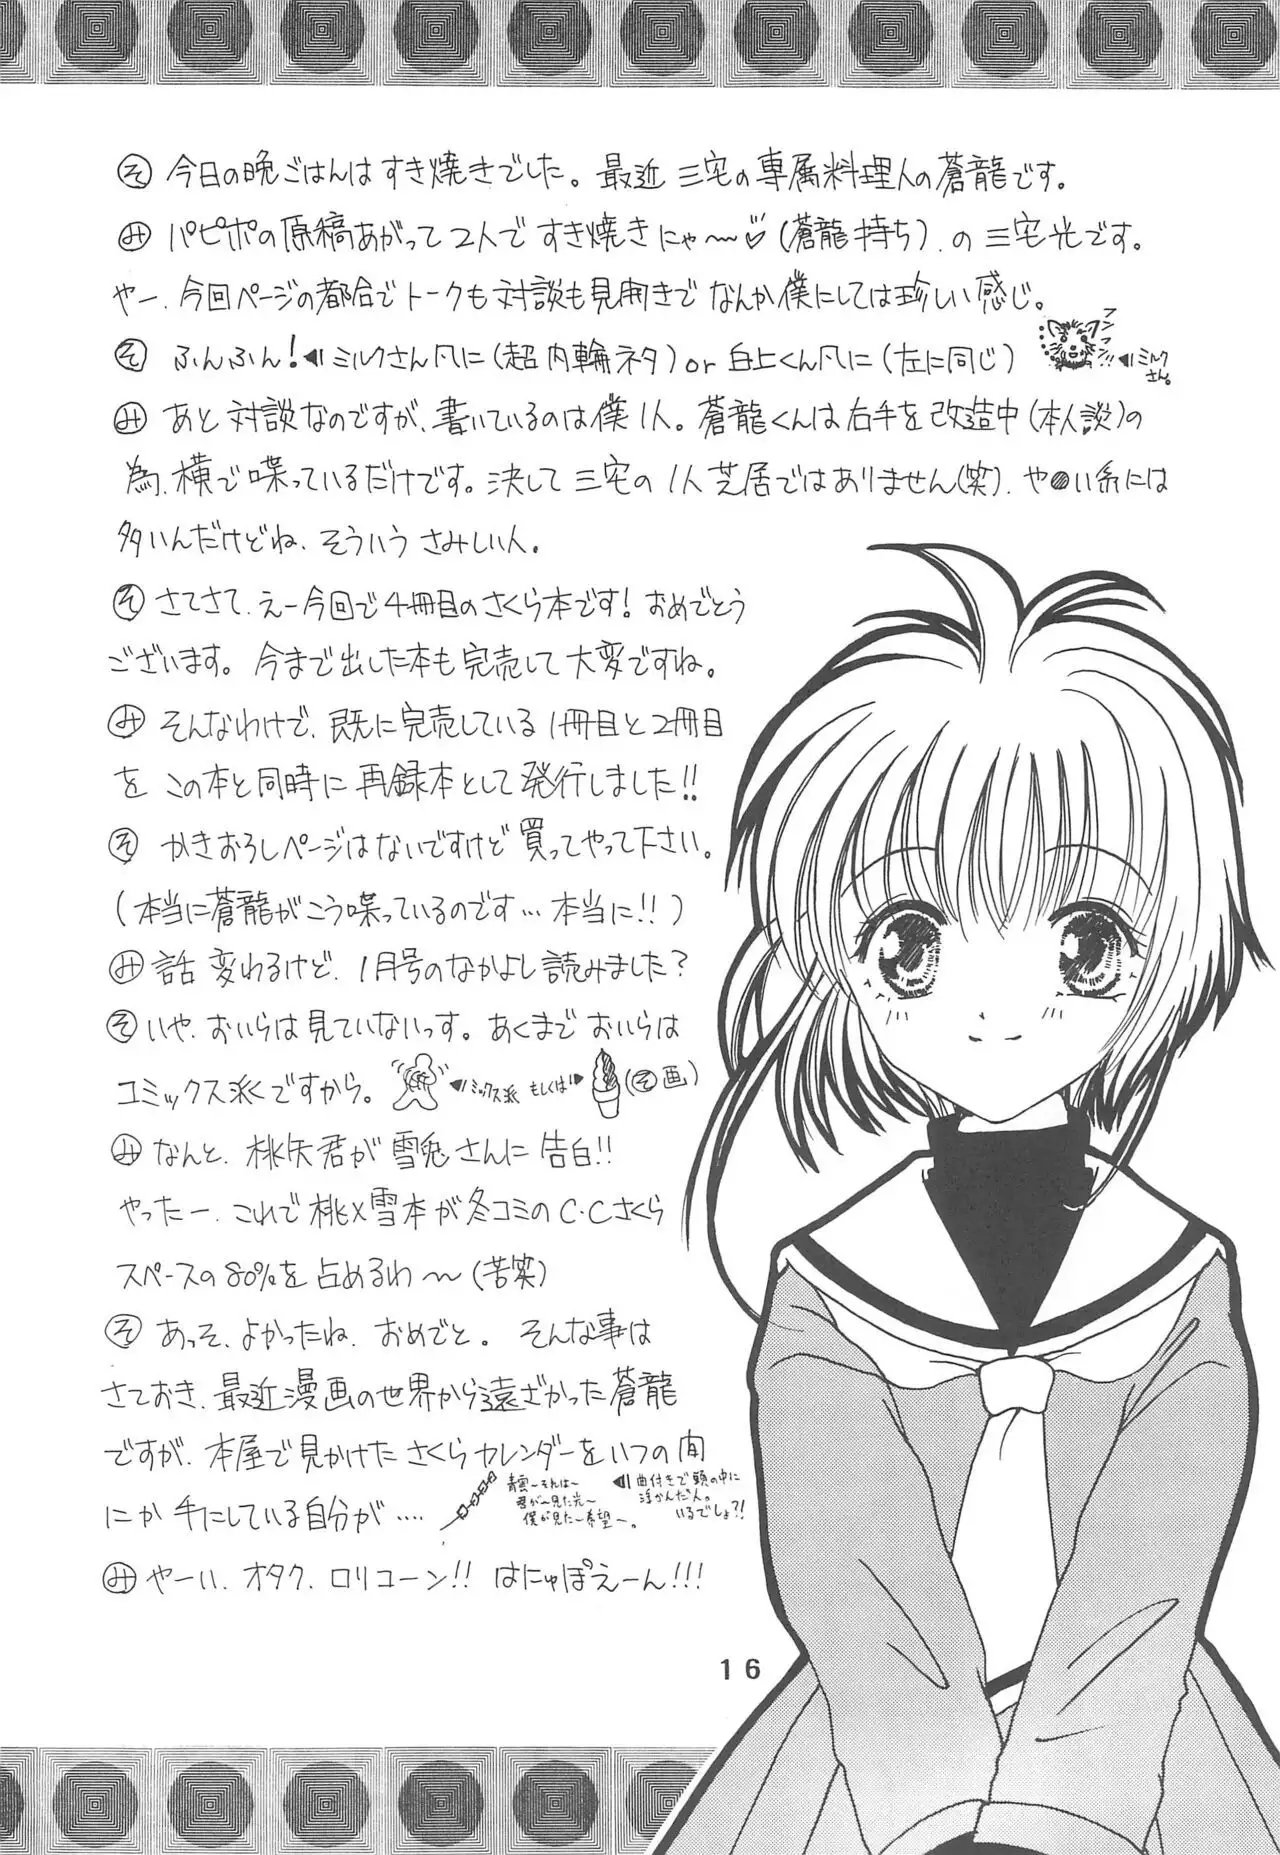 そ 今日の晩ごはんはすき焼きでした。最近 三宅の専属料理人の蒼龍です。
み パピポの原稿あがって2人で すき焼きにゃ〜♡(蒼龍持ち)、の三宅光です。
やー、今回ページの都合でトークも対談も見開きで なんか僕にしては珍しい感じ。
そ ふんふん!◀ミルクさん風に(超内輪ネタ)or 白上くん風に(左に同じ)
◀ミルク
さん。
み あと対談なのですが、書いているのは僕1人。蒼龍くんは右手を改造中(本人談)の
為、横で喋っているだけです。決して三宅の1人芝居ではありません(笑)、や●い系には
多いんだけどね、そういう さみしい人。
そ さてさて、えー今回で4冊目のさくら本です!おめでとう
ございます。今まで出した本も完売して大変ですね。
み そんなわけで、既に完売している1冊目と2冊目
を この本と同時に再録本として発行しました!!
そ かきおろしページはないですけど買ってやって下さい。
(本当に蒼龍がこう喋っているのです…本当に!!)
み 話変わるけど、1月号のなかよし読みました?
そ いや、おいらは見ていないっす。あくまでおいらは
コミックス派ですから。 ◀ミックス派 もしくは▶ (そ画)
み なんと、桃矢君が雪兎さんに告白!!
やったー、これで桃×雪本が冬コミのC・Cさくら
スペースの80%を占めるわ〜(苦笑)
そ あっそ、よかったね、おめでと。そんな事は
さておき、最近漫画の世界から遠ざかった蒼龍
ですが、本屋で見かけたさくらカレンダーをいつの間
にか手にしている自分が‥‥
青雲〜それは〜
君が〜見た光〜
僕が見た〜希望〜。
◀曲付きで頭の中に
浮かんだ人。
いるでしょ?!
み やーい、オタク、ロリコーン!! はにゃぽえーん!!!
16